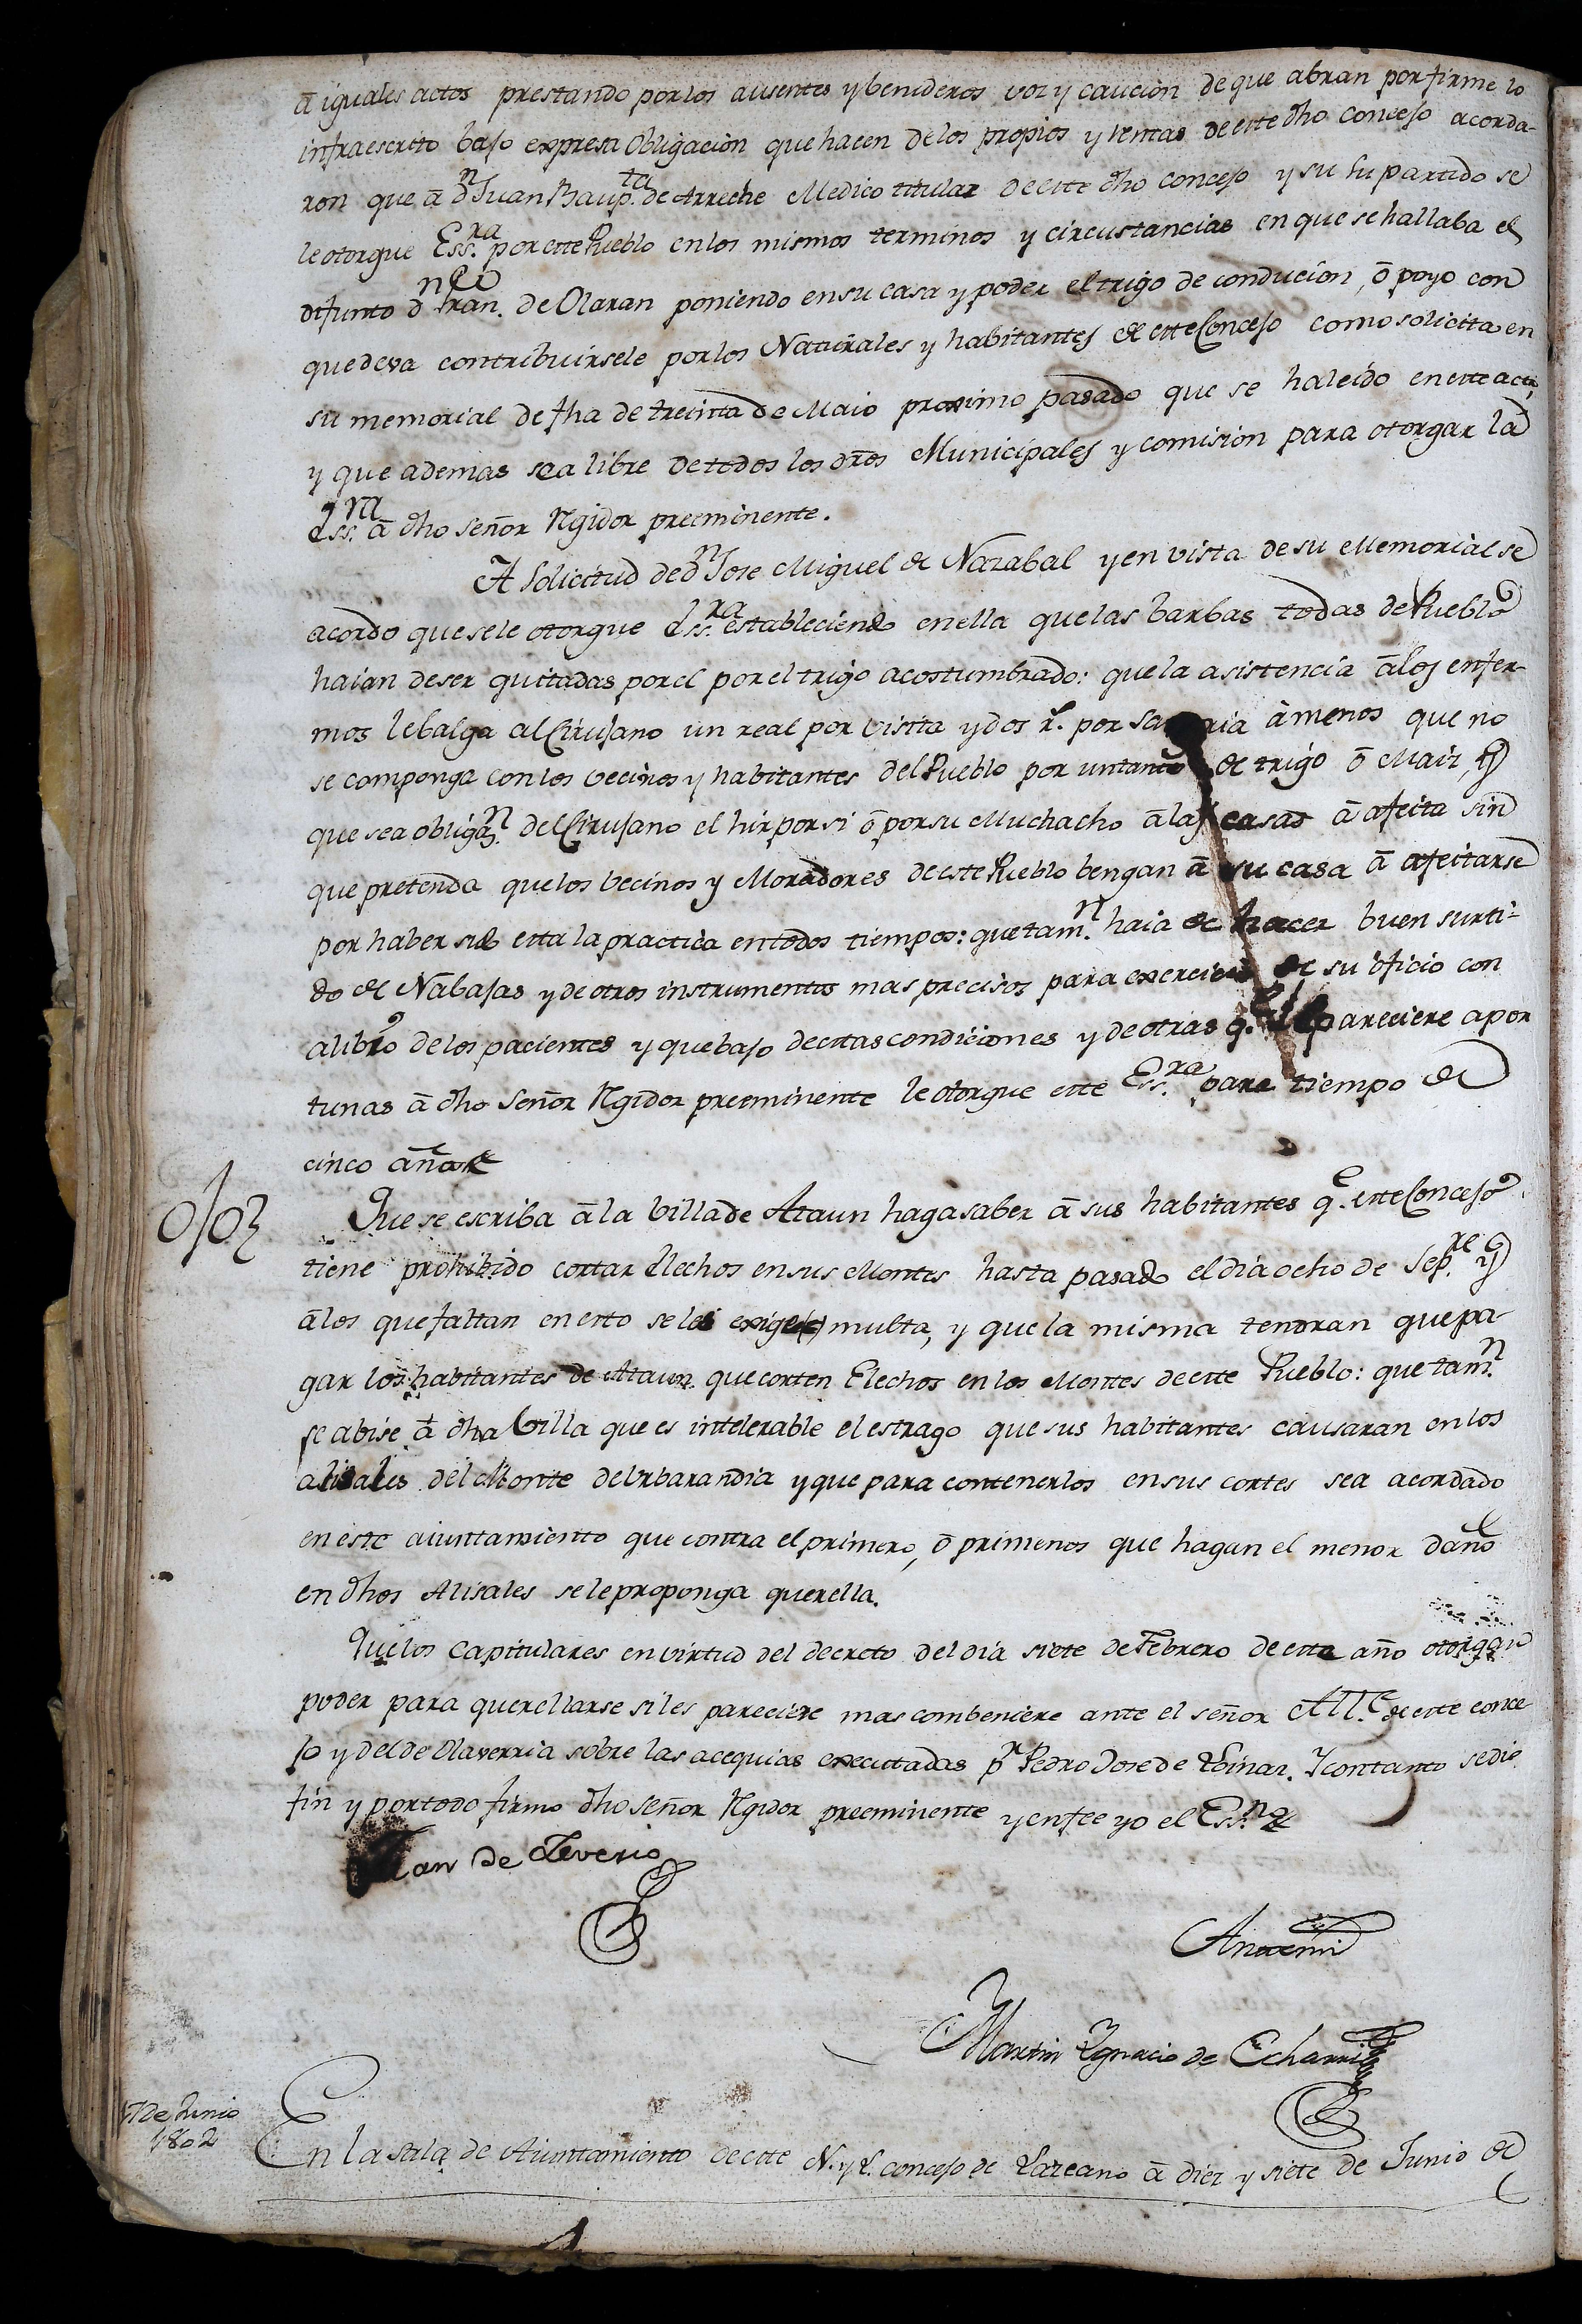 â iguales actos prestando por los ausentes y benideros voz y caucion de que abran por firme lo
infraescrito bajo expresa obligacion que hacen de los propios y rentas de este dho concejo acorda-
ron que â dn Juan Baupta. de Arreche Medico titular de este dho concejo y su su partido se
le otorgue Essra. por este Pueblo en los mismos terminos y circustancias en que se hallaba el
difunto dn Franco. de Olaran poniendo en su casa y poder el trigo de conducion, ô poyo con
que deva contribuirsele por los Naturales y habitantes de este Concejo como solicita en
su memorial de fha de treinta de Maio proximo pasado que se ha leido en este acto,
y que ademas sea libre de todos los dros Municipales y comision para otorgar la
Essra. â dho señor Rgidor preeminente.
A Solicitud de dn Jose Miguel de Nazabal y en vista de su Memorial se
acordo que se le otorgue Essra. estableciendo en ella que las barbas todas del Pueblo
haian de ser quitadas por el por el trigo acostumbrado: que la asistencia â los enfer-
mos le balga al Cirujano un real por visita y dos rs. por â menos que no
se componga con los vecinos y habitantes del Pueblo por un tanto de trigo ô Maiz, y
que sea obligan. del Cirujano el hir por si ô por su Muchacho â las casas â afeita sin
que pretenda que los vecinos y Moradores de este Pueblo bengan â su casa â afeitarse
por haber sido esta la practica en todos tiempos: que tamn. haia de hacer buen surti-
do de Nabajas y de otros instrumentos mas precisos para exercicio de su oficio con
alibio de los pacientes y que bajo de estas condiciones y de otras qe. le pareciere apor
tunas â dho Señor Rgidor preeminente le otorgue este Essra. para tiempo de
cinco años
Que se escriba â la Villa de Ataun haga saber â sus habitantes qe. este Concejo
ojo
tiene prohibido cortar Elechos en sus Montes hasta pasado el dia ocho de Sepre. y
â los que faltan en esto se les exige multa, y que la misma tendran que pa-
gar los habitantes de Ataun que corten Elechos en los Montes de este Pueblo: que tamn.
se abise â dha Villa que es intelerable el estrago que sus habitantes causaran en los
alisales del Monte de Urbarandia y que para contenerlos en sus cortes sea acordado
en este aiuntamiento que contra el primero, ô primeros que hagan el menor daño
en dhos Alisales se le proponga querella.
Que los Capitulares en virtud del decreto del dia siete de Febrero de este año otorgan
poder para querellarse si les pareciere mas combeniere ante el señor Alle. de este conce
jo y del de Olaverria sobre las acequias executadas pr. Pedro Jose de Loinaz. Y con tanto se dio
fin y por todo firmo dho señor Rgidor preeminente y en fee yo el Essno.
Juan de Zeverio
Ante mi
Martin Ygnacio de Echarri
17 de Junio
1802
En la sala de Aiuntamiento de este N. y L. concejo de Lazcano â diez y siete de Junio de